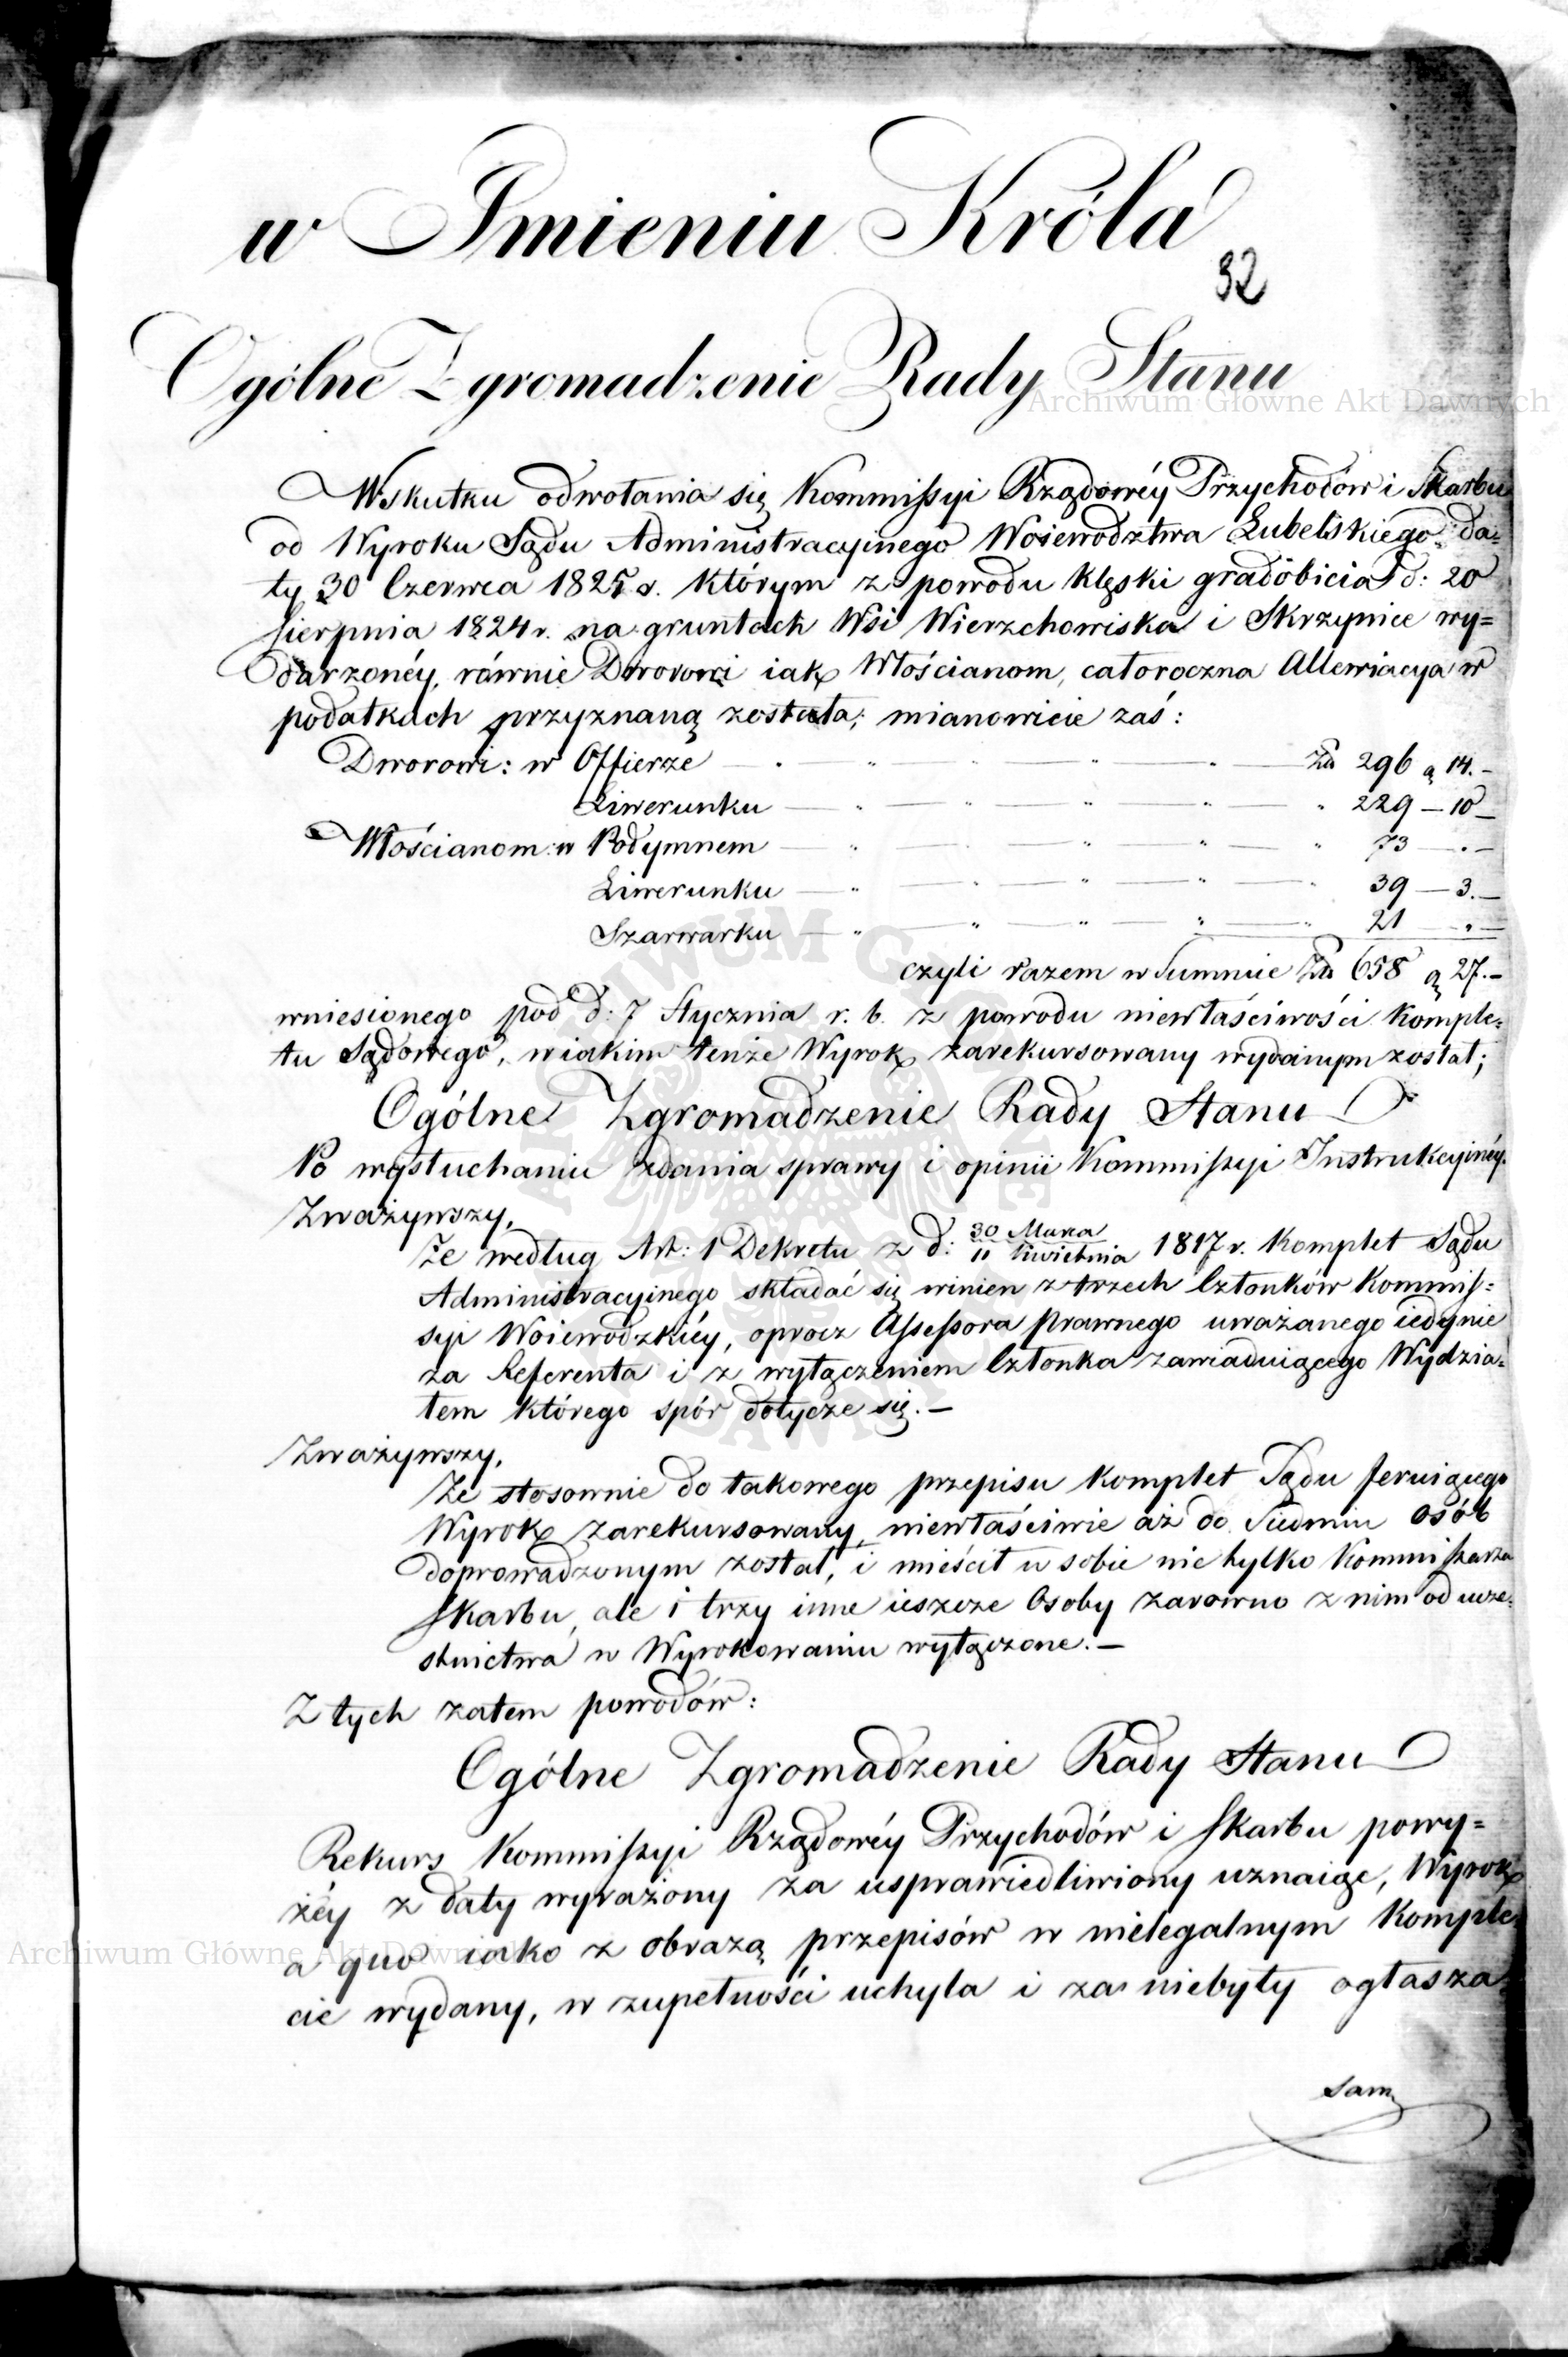 w Jmieniu Króla
32
Ogólne Zgromadzenie Rady Stanu
Archiwum Główne Akt Dawnych
Wskutku odwołania się Kommissyi Rządowéy Przychodów i Skarbu
od Wyroku Sądu Administracyinego Woiewodztwa Lubelskiego da=
ty 30 Czerwca 1825 r. którym z powodu klęski gradobicia d: 20
Sierpnia 1824 r. na gruntach Wsi Wierzchowiska i Skrzynice wy=
darzonéy, równie Dworowi iak Włościanom, całoroczna Allewiacya w
podatkach przyznaną została; mianowicie zaś:
Dworowi: w Offierze — " — " — " — Zł 296 g 14.—
Liwerunku — " — " — " — " 229 — 10 —
Włościanom: w Podymnem — " — " — " — " 73 — . —
Liwerunku — " — " — " — " 39 — 3. —
Szarwarku — " — " — " — " 21 — . —
czyli razem w Summie Zł 658 g 27.—
wniesionego pod d: 7 Stycznia r. b. z powodu niewłaściwości Komple=
tu Sądowego, w iakim tenże Wyrok zarekursowany wydanym został;
Ogólne Zgromadzenie Rady Stanu
Po wysłuchaniu zdania sprawy i opinii Kommissyi Instrukcyinéy.
Zważywszy,
Że według Art: 1 Dekretu z d: 30 Marca / 11 Kwietnia 1817 r. Komplet Sądu
Administracyinego składać się winien z trzech Członków Kommis=
syi Woiewodzkiéy, oprocz Assessora Prawnego uważanego iedynie
za Referenta i z wyłączeniem Członka zawiaduiącego Wydzia=
łem którego spór dotycze się.—
Zważywszy,
Że stosownie do takowego przepisu Komplet Sądu feruiącego
Wyrok zarekursowany, niewłaściwie aż do Siedmiu Osób
doprowadzonym został, i mieścił w sobie nie tylko Kommissarza
Skarbu, ale i trzy inne ieszcze Osoby zarowno z nim od ucze=
stnictwa w Wyrokowaniu wyłączone.—
Z tych zatem powodów:
Ogólne Zgromadzenie Rady Stanu
Rekurs Kommissyi Rządowéy Przychodów i Skarbu powy=
żéy z daty wyrażony za usprawiedliwiony uznaiąc, Wyrok
a quo iako z obrazą przepisów w nielegalnym Komple=
cie wydany, w zupełności uchyla i za niebyły ogłasza
Archiwum Główne Akt Dawnych
sam